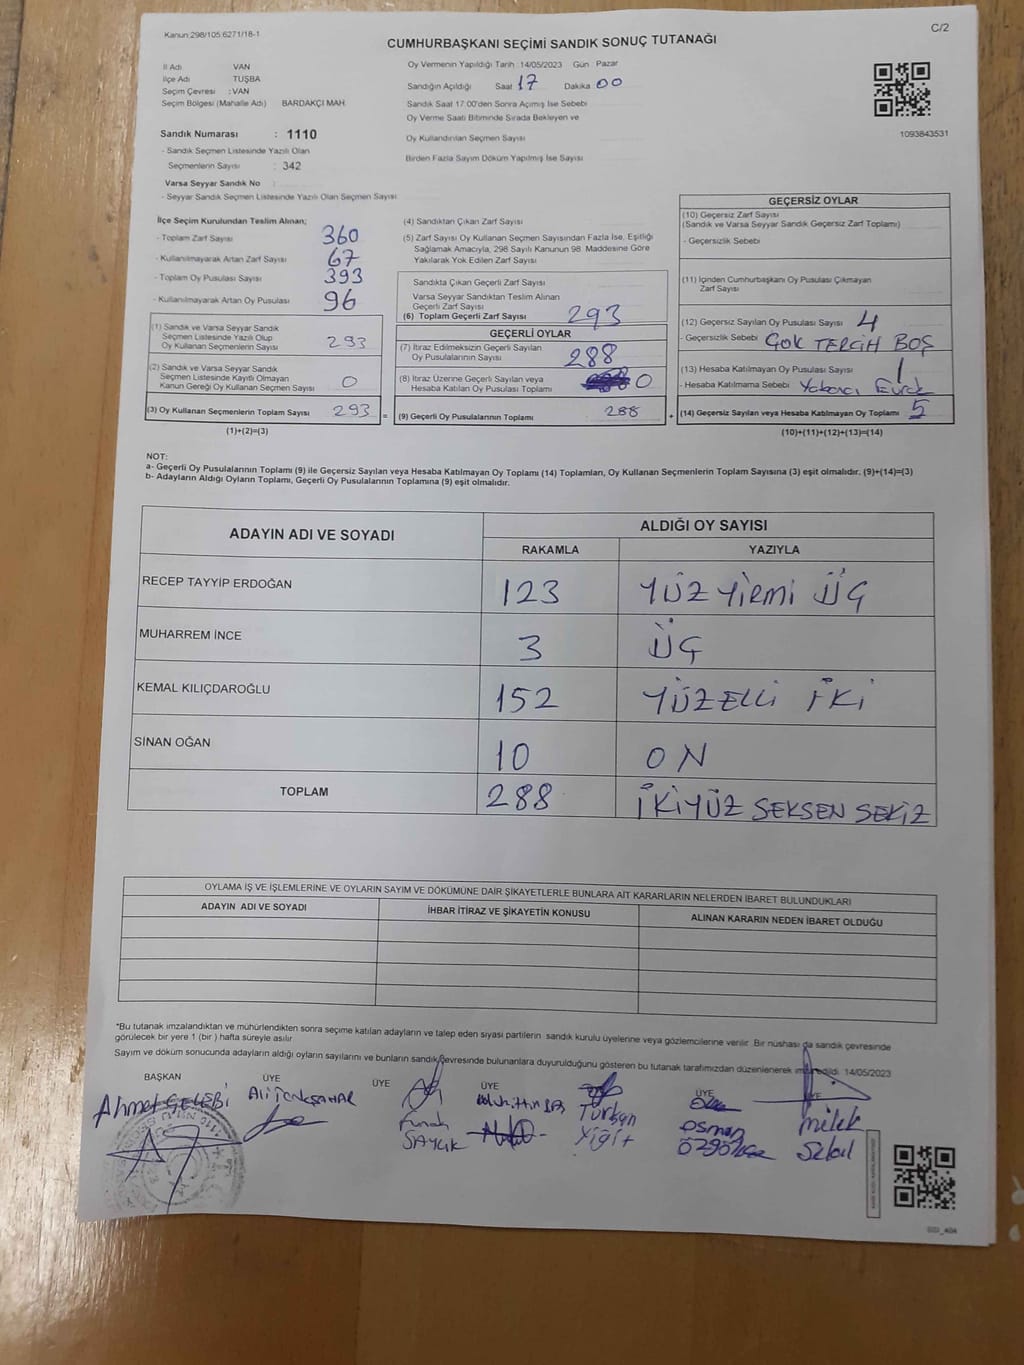 Kanun:298/105:6271/18-1
C/2
CUMHURBAŞKANI SEÇİMİ SANDIK SONUÇ TUTANAĞI
İl Adı VAN
İlçe Adı TUŞBA
Seçim Çevresi :VAN
Seçim Bölgesi (Mahalle Adı) BARDAKÇI MAH.
Oy Vermenin Yapıldığı Tarih :14/05/2023 Gün Pazar
Sandığın Açıldığı Saat 17 Dakika 00
Sandık Saat 17:00'den Sonra Açımış İse Sebebi
Oy Verme Saati Bitiminde Sırada Bekleyen ve
Oy Kullandırılan Seçmen Sayısı
Birden Fazla Sayım Döküm Yapılmış İse Sayısı
1093843531
Sandık Numarası : 1110
- Sandık Seçmen Listesinde Yazılı Olan
Seçmenlerin Sayısı : 342
Varsa Seyyar Sandık No :
- Seyyar Sandık Seçmen Listesinde Yazılı Olan Seçmen Sayısı
İlçe Seçim Kurulundan Teslim Alınan;
- Toplam Zarf Sayısı 360
- Kullanılmayarak Artan Zarf Sayısı 67
- Toplam Oy Pusulası Sayısı 393
- Kullanılmayarak Artan Oy Pusulası 96
(1) Sandık ve Varsa Seyyar Sandık
Seçmen Listesinde Yazılı Olup
Oy Kullanan Seçmenlerin Sayısı 293
(2) Sandık ve Varsa Seyyar Sandık
Seçmen Listesinde Kayıtlı Olmayan
Kanun Gereği Oy Kullanan Seçmen Sayısı 0
(3) Oy Kullanan Seçmenlerin Toplam Sayısı 293 =
(1)+(2)=(3)
(4) Sandıktan Çıkan Zarf Sayısı
(5) Zarf Sayısı Oy Kullanan Seçmen Sayısından Fazla İse, Eşitliği
Sağlamak Amacıyla, 298 Sayılı Kanunun 98. Maddesine Göre
Yakılarak Yok Edilen Zarf Sayısı
Sandıkta Çıkan Geçerli Zarf Sayısı
Varsa Seyyar Sandıktan Teslim Alınan
Geçerli Zarf Sayısı
(6) Toplam Geçerli Zarf Sayısı 293
GEÇERLİ OYLAR
(7) İtiraz Edilmeksizin Geçerli Sayılan
Oy Pusulalarının Sayısı 288
(8) İtiraz Üzerine Geçerli Sayılan veya
Hesaba Katılan Oy Pusulası Toplamı 0
(9) Geçerli Oy Pusulalarının Toplamı 288 +
GEÇERSİZ OYLAR
(10) Geçersiz Zarf Sayısı
(Sandık ve Varsa Seyyar Sandık Geçersiz Zarf Toplamı)
- Geçersizlik Sebebi
(11) İçinden Cumhurbaşkanı Oy Pusulası Çıkmayan
Zarf Sayısı
(12) Geçersiz Sayılan Oy Pusulası Sayısı 4
- Geçersizlik Sebebi ÇOK TERCİH BOŞ
(13) Hesaba Katılmayan Oy Pusulası Sayısı 1
- Hesaba Katılmama Sebebi Yabancı Evrak
(14) Geçersiz Sayılan veya Hesaba Katılmayan Oy Toplamı 5
(10)+(11)+(12)+(13)=(14)
NOT:
a- Geçerli Oy Pusulalarının Toplamı (9) ile Geçersiz Sayılan veya Hesaba Katılmayan Oy Toplamı (14) Toplamları, Oy Kullanan Seçmenlerin Toplam Sayısına (3) eşit olmalıdır. (9)+(14)=(3)
b- Adayların Aldığı Oyların Toplamı, Geçerli Oy Pusulalarının Toplamına (9) eşit olmalıdır.
ADAYIN ADI VE SOYADI ALDIĞI OY SAYISI
RAKAMLA YAZIYLA
RECEP TAYYİP ERDOĞAN 123 YÜZ YİRMİ ÜÇ
MUHARREM İNCE 3 ÜÇ
KEMAL KILIÇDAROĞLU 152 YÜZELLİ İKİ
SİNAN OĞAN 10 ON
TOPLAM 288 İKİYÜZ SEKSEN SEKİZ
OYLAMA İŞ VE İŞLEMLERİNE VE OYLARIN SAYIM VE DÖKÜMÜNE DAİR ŞİKAYETLERLE BUNLARA AİT KARARLARIN NELERDEN İBARET BULUNDUKLARI
ADAYIN ADI VE SOYADI İHBAR İTİRAZ VE ŞİKAYETİN KONUSU ALINAN KARARIN NEDEN İBARET OLDUĞU
*Bu tutanak imzalandıktan ve mühürlendikten sonra seçime katılan adayların ve talep eden siyasi partilerin sandık kurulu üyelerine veya gözlemcilerine verilir. Bir nüshası da sandık çevresinde
görülecek bir yere 1 (bir ) hafta süreyle asılır.
Sayım ve döküm sonucunda adayların aldığı oyların sayılarını ve bunların sandık çevresinde bulunanlara duyurulduğunu gösteren bu tutanak tarafımızdan düzenlenerek imza edildi. 14/05/2023
BAŞKAN ÜYE ÜYE ÜYE ÜYE
Ahmet ÇELEBİ
Türkan
Yiğit
Osman
Melek